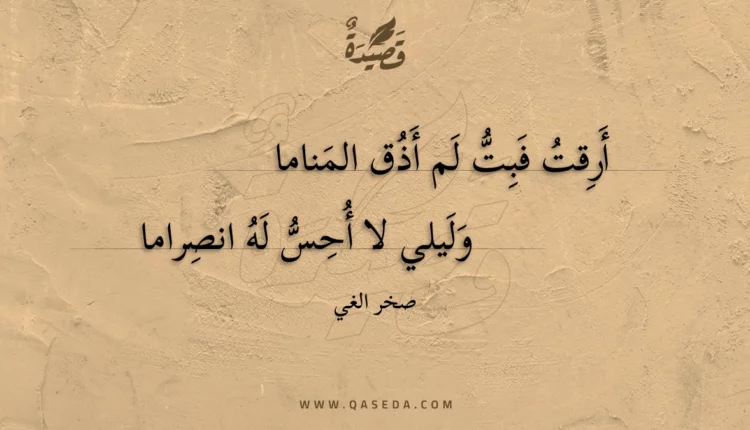 قَصِيدَةٌ
أَرِقتُ فَبِتُّ لَم أَذُق المَناما
وَلَيلي لا أُحِسُّ لَهُ انصِراما
صخر الغي
WWW.QASEDA.COM